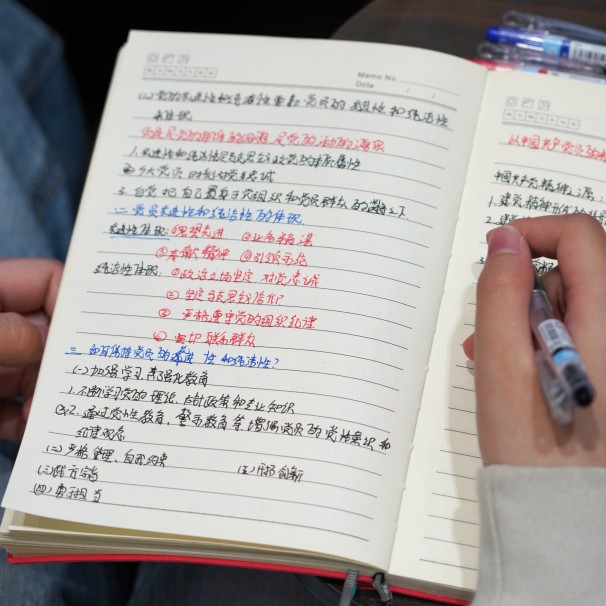 Memo No.
Date / /
Mo Tu We Th Fr Sa Su
(二)党的先进性和纯洁性要靠党员的先进性和纯洁性
来体现
1.先进性和纯洁性是马克思主义政党的本质属性
3.自觉把自己置身于党组织和党员群众的监督之下
二、党员先进性和纯洁性的体现
先进性体现:①思想先进 ②业务精湛
③奉献精神 ④引领示范
纯洁性体现:①政治立场坚定 对党忠诚
②坚定马克思主义信仰
③严格遵守党的组织纪律
④密切联系群众
三、如何保持党员的先进性和纯洁性?
(一)加强学习,强化教育
1.不断学习党的理论、方针政策和专业知识
2.通过党性教育,警示教育等增强党员的党性意识和
纪律观念
(二)严格管理、自我约束 (五)开拓创新
(四)勇于担当
从中国共产党员的
中国共产党精神之源:
1.建党精神形成的
2.建党
3.